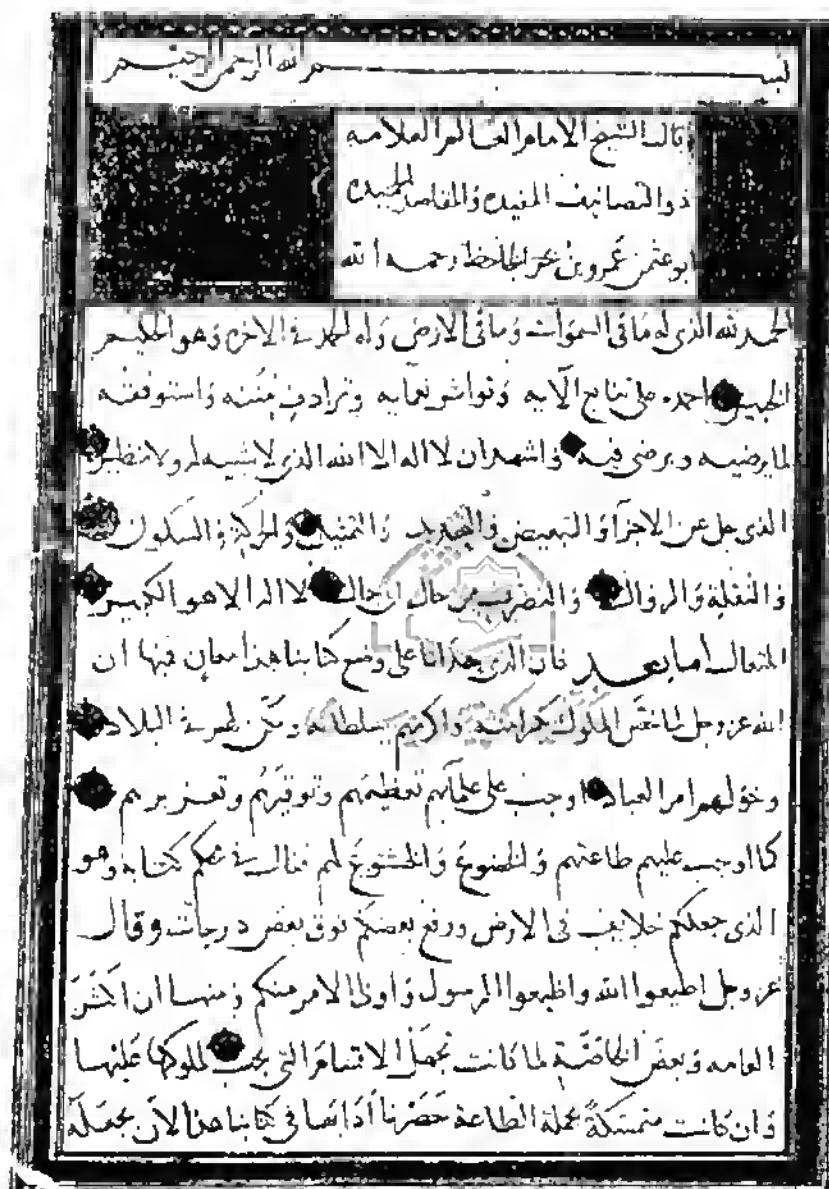 بسم الله الرحمن الرحيم
قال الشيخ الامام العالم العلامه
ذو التصانيف المفيده والمقاصد الحميده
ابو عثمن عمرو بن بحر الجاحظ رحمه الله
الحمد لله الذى له ما فى السموات وما فى الارض وله الحمد فى الاخره وهو الحكيم
الخبير احمده على تتابع آلايه وتواتر نعمايه وترادف مننه واستوفقه
لما يرضيه ويرضى فيه واشهد ان لا اله الا الله الذى لا شبيه له ولا نظير
الذى جل عن الاجزآ والتبعيض والتحديد والتمثيل والحركة والسكون
والنقلة والزوال والتصرف من حال الى حال لا اله الا هو الكبير
المتعال اما بعد فان الذى حدانا على وضع كتابنا هذا معان فيها ان
الله عز وجل لما خص الملوك بكرامته واكرمهم بسلطانه ومكن لهم فى البلاد
وخولهم امر العباد اوجب على علمآيهم تعظيمهم وتوقيرهم وتعزيرهم
كما اوجب عليهم طاعتهم والخضوع والخشوع لهم فقال فى محكم كتابه وهو
الذى جعلكم خلايف فى الارض ورفع بعضكم فوق بعض درجات وقال
عز وجل اطيعوا الله واطيعوا الرسول واولى الامر منكم ومنها ان اكثر
العامه وبعض الخاصة لما كانت تجهل الاقسام التى يجب لملوكها عليها
وان كانت متمسكة بجملة الطاعة حصرنا آدابها فى كتابنا هذا لان نجعله